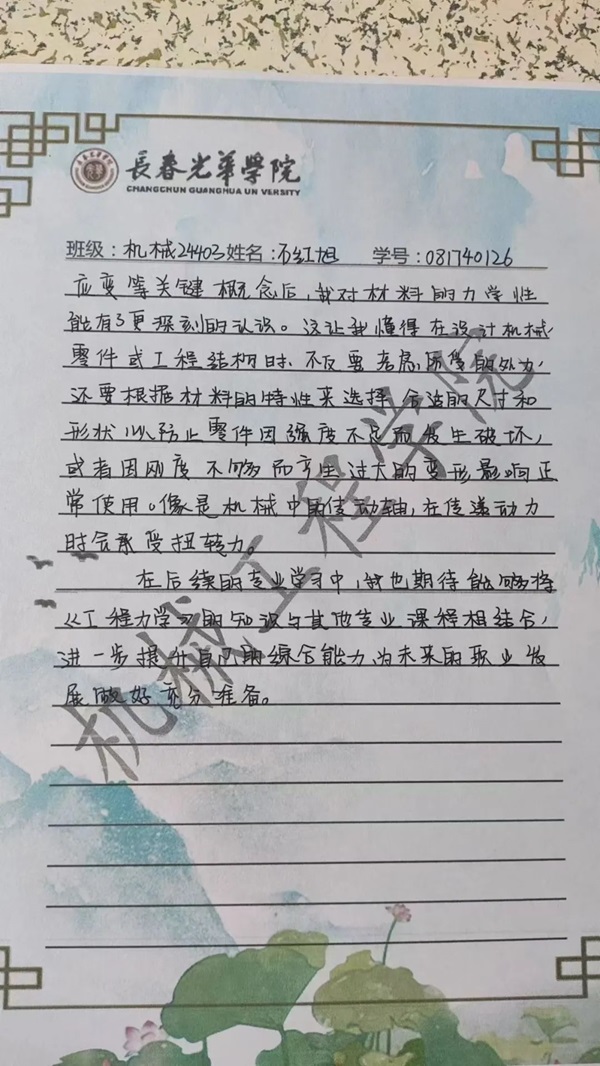 長春光華學院
CHANGCHUN GUANGHUA UN VERSITY
班级：机械24403姓名：石红旭 学号：081740126
应变等关键概念后，我对材料的力学性
能有了更深刻的认识。这让我懂得在设计机械
零件或工程结构时，不仅要考虑所受的外力，
还要根据材料的特性来选择合适的尺寸和
形状以防止零件因强度不足而发生破坏，
或者因刚度不够而产生过大的变形影响正
常使用。像是机械中的传动轴，在传递动力
时会承受扭转力。
在后续的专业学习中，我也期待能够将
从工程力学习的知识与其他专业课程相结合，
进一步提升自己的综合能力，为未来的职业发
展做好充分准备。
机械工程学院